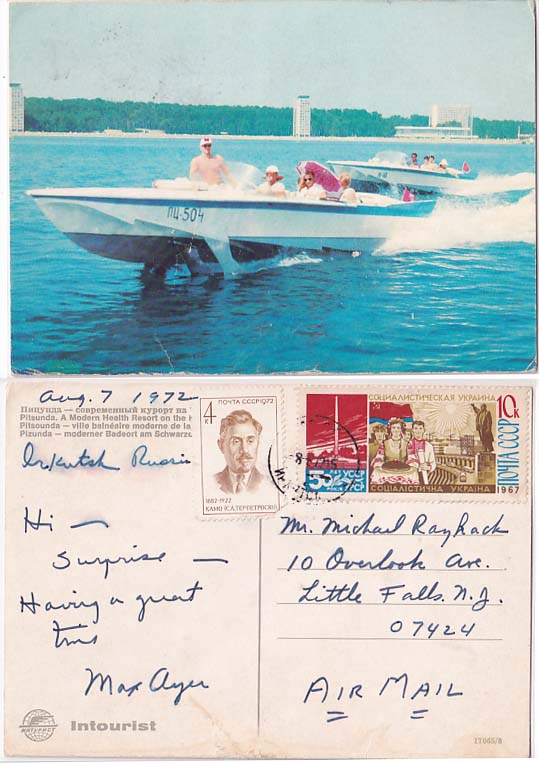 ПЦ-504
Aug. 7 1972
Пицунда — современный курорт на
Pitsunda. A Modern Health Resort on the
Pitsounda — ville balnéaire moderne de la
Pizunda — moderner Badeort am Schwarz
Irkutsk Russia
4К ПОЧТА СССР 1972
1882-1922
КАМО (С.А.ТЕР-ПЕТРОСЯН)
СОЦИАЛИСТИЧЕСКАЯ УКРАИНА
10к
ПОЧТА СССР
50
СОЦІАЛІСТИЧНА УКРАЇНА
1967
Hi —
Surprise —
Having a great
time
Max Ayer
Mr. Michael
10 Overlook Ave.
Little Falls. N.J.
07424
AIR MAIL
ИНТУРИСТ
Intourist
17065/8